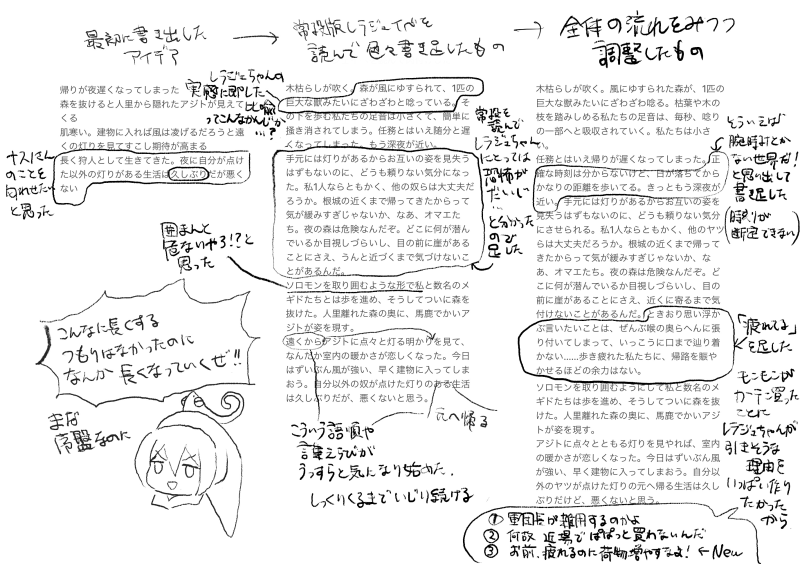 最初に書き出した
アイデア
→
常設版レラジェイベを
読んで色々書き足したもの
→
全体の流れをみつつ
調整したもの
帰りが夜遅くなってしまった
森を抜けると人里から隠れたアジトが見えて
くる
肌寒い。建物に入れば風は凌げるだろうと遠
くの灯りを見てすこし期待が高まる
長く狩人として生きてきた。夜に自分が点け
た以外の灯りがある生活は久しぶりだが悪く
ない
のことを
匂わせたい
と思った
レラジェちゃんの
実際に即した
比喩
ってこんなかんじか
…?
木枯らしが吹く。森が風にゆすられて、1匹の
巨大な獣みたいにざわざわと唸っている。そ
の下を歩む私たちの足音は小さくて、簡単に
掻き消されてしまう。任務とはいえ随分と遅
くなってしまった。もう深夜が近い。
手元には灯りがあるからお互いの姿を見失う
はずもないのに、どうも頼りない気分になっ
た。私1人ならともかく、他の奴らは大丈夫だ
ろうか。根城の近くまで帰ってきたからって
気が緩みすぎじゃないか、なあ、オマエた
ち。夜の森は危険なんだぞ。どこに何が潜ん
でいるか目視しづらいし、目の前に崖がある
ことにさえ、うんと近づくまで気づけないこ
とがあるんだ。
ソロモンを取り囲むような形で私と数名のメ
ギドたちとは歩を進め、そうしてついに森を
抜けた。人里離れた森の奥に、馬鹿でかいア
ジトが姿を現す。
遠くからアジトに点々と灯る明かりを見て、
なんだか室内の暖かさが恋しくなった。今日
はずいぶん風が強い、早く建物に入ってしま
おう。自分以外の奴が点けた灯りのある生活
は久しぶりだが、悪くないと思う。
常設を
読んで
レラジェちゃん
にとっては
恐怖が
だいじ
…
と分かった
ので
足した
囲まんと
危ないやろ!?と
思った
こんなに長くする
つもりはなかったのに
なんか長くなっていくぜ!!
まだ
序盤なのに
こういう語順や
言葉えらびが
うっすらと気になり始めた.
しっくりくるまでいじり続ける
元へ帰る
木枯らしが吹く。風にゆすられた森が、1匹の
巨大な獣みたいにざわざわと唸る。枯葉や木
の枝を踏みしめる私たちの足音は、毎秒、唸り
の一部へと吸収されていく。私たちは小さ
い。
任務とはいえ帰りが遅くなってしまった。正
確な時刻は分からないけど、日が落ちてから
かなりの距離を歩いてる。きっともう深夜が
近い。手元には灯りがあるからお互いの姿を
見失うはずもないのに、どうも頼りない気分
にさせられる。私1人ならともかく、他のヤツら
は大丈夫だろうか。根城の近くまで帰って
きたからって気が緩みすぎじゃないか、な
あ、オマエたち。夜の森は危険なんだぞ。ど
こに何が潜んでいるか目視しづらいし、目の
前に崖があることにさえ、近くに寄るまで気
付けないことがあるんだ。ときおり思い浮か
ぶ言いたいことは、ぜんぶ喉の奥らへんに張
り付いてしまって、いっこうに口まで辿り着
かない……歩き疲れた私たちに、帰路を賑や
かせるほどの余力はない。
ソロモンを取り囲むようにして私と数名のメ
ギドたちは歩を進め、そうしてついに森を抜
けた。人里離れた森の奥に、馬鹿でかいアジ
トが姿を現す。
アジトに点々とともる灯りを見やれば、室内
の暖かさが恋しくなった。今日はずいぶん風
が強い、早く建物に入ってしまおう。自分以
外のヤツが点けた灯りの元へ帰る生活は久し
ぶりだけど、悪くないと思う。
そういえば
腕時計とか
ない世界だ!
と思い出して
書き足した
(時刻が
断定できない)
「疲れてる」
を足した
モンモンが
カーテン買った
ことに
レラジェちゃんが
引きそうな
理由を
いっぱい作り
たかった
から
① 軍団長が雑用するのかよ
② 何故 近場でぱぱっと買わないんだ
③ お前、疲れるのに荷物増やすなよ! ←New